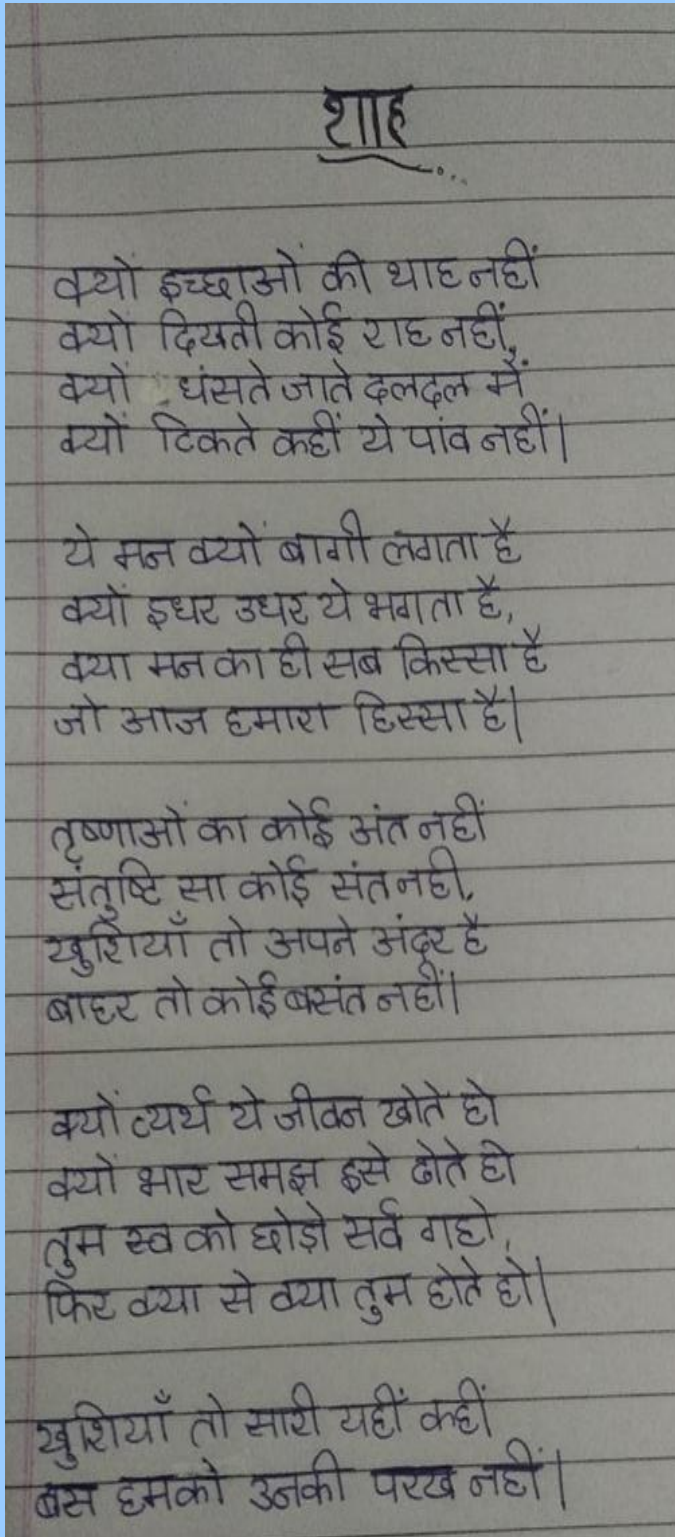 राह
क्यों इच्छाओं की थाह नहीं
क्यों दिखती कोई राह नहीं,
क्यों धंसते जाते दलदल में
क्यों टिकते कहीं ये पांव नहीं।
ये मन क्यों बागी लगता है
क्यों इधर उधर ये भगता है,
क्या मन का ही सब किस्सा है
जो आज हमारा हिस्सा है।
तृष्णाओं का कोई अंत नहीं
संतुष्टि सा कोई संत नही,
खुशियाँ तो अपने अंदर है
बाहर तो कोई बसंत नहीं।
क्यों व्यर्थ ये जीवन खोते हो
क्यों भार समझ इसे ढोते हो
तुम स्व को छोड़ो सर्व गहो,
फिर क्या से क्या तुम होते हो।
खुशियाँ तो सारी यहीं कहीं
बस हमको उनकी परख नहीं।